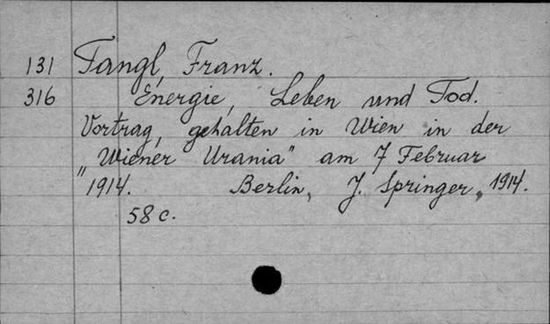 131 Tangl, Franz.
316 Energie, Leben und Tod.
Vortrag, gehalten in Wien in der
"Wiener Urania" am 7 Februar
1914. Berlin, J. Springer, 1914.
58 c.